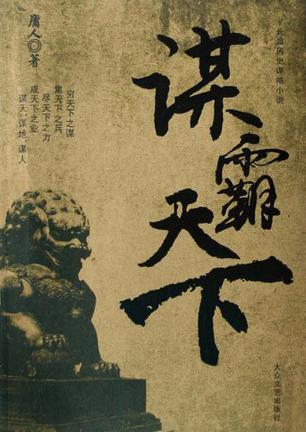 长篇历史谋略小说
谋霸天下
穷天下之谋
集天下之兵
尽天下之力
成天下之业
谋天、谋地、谋人
庸人◎著
大众文艺出版社